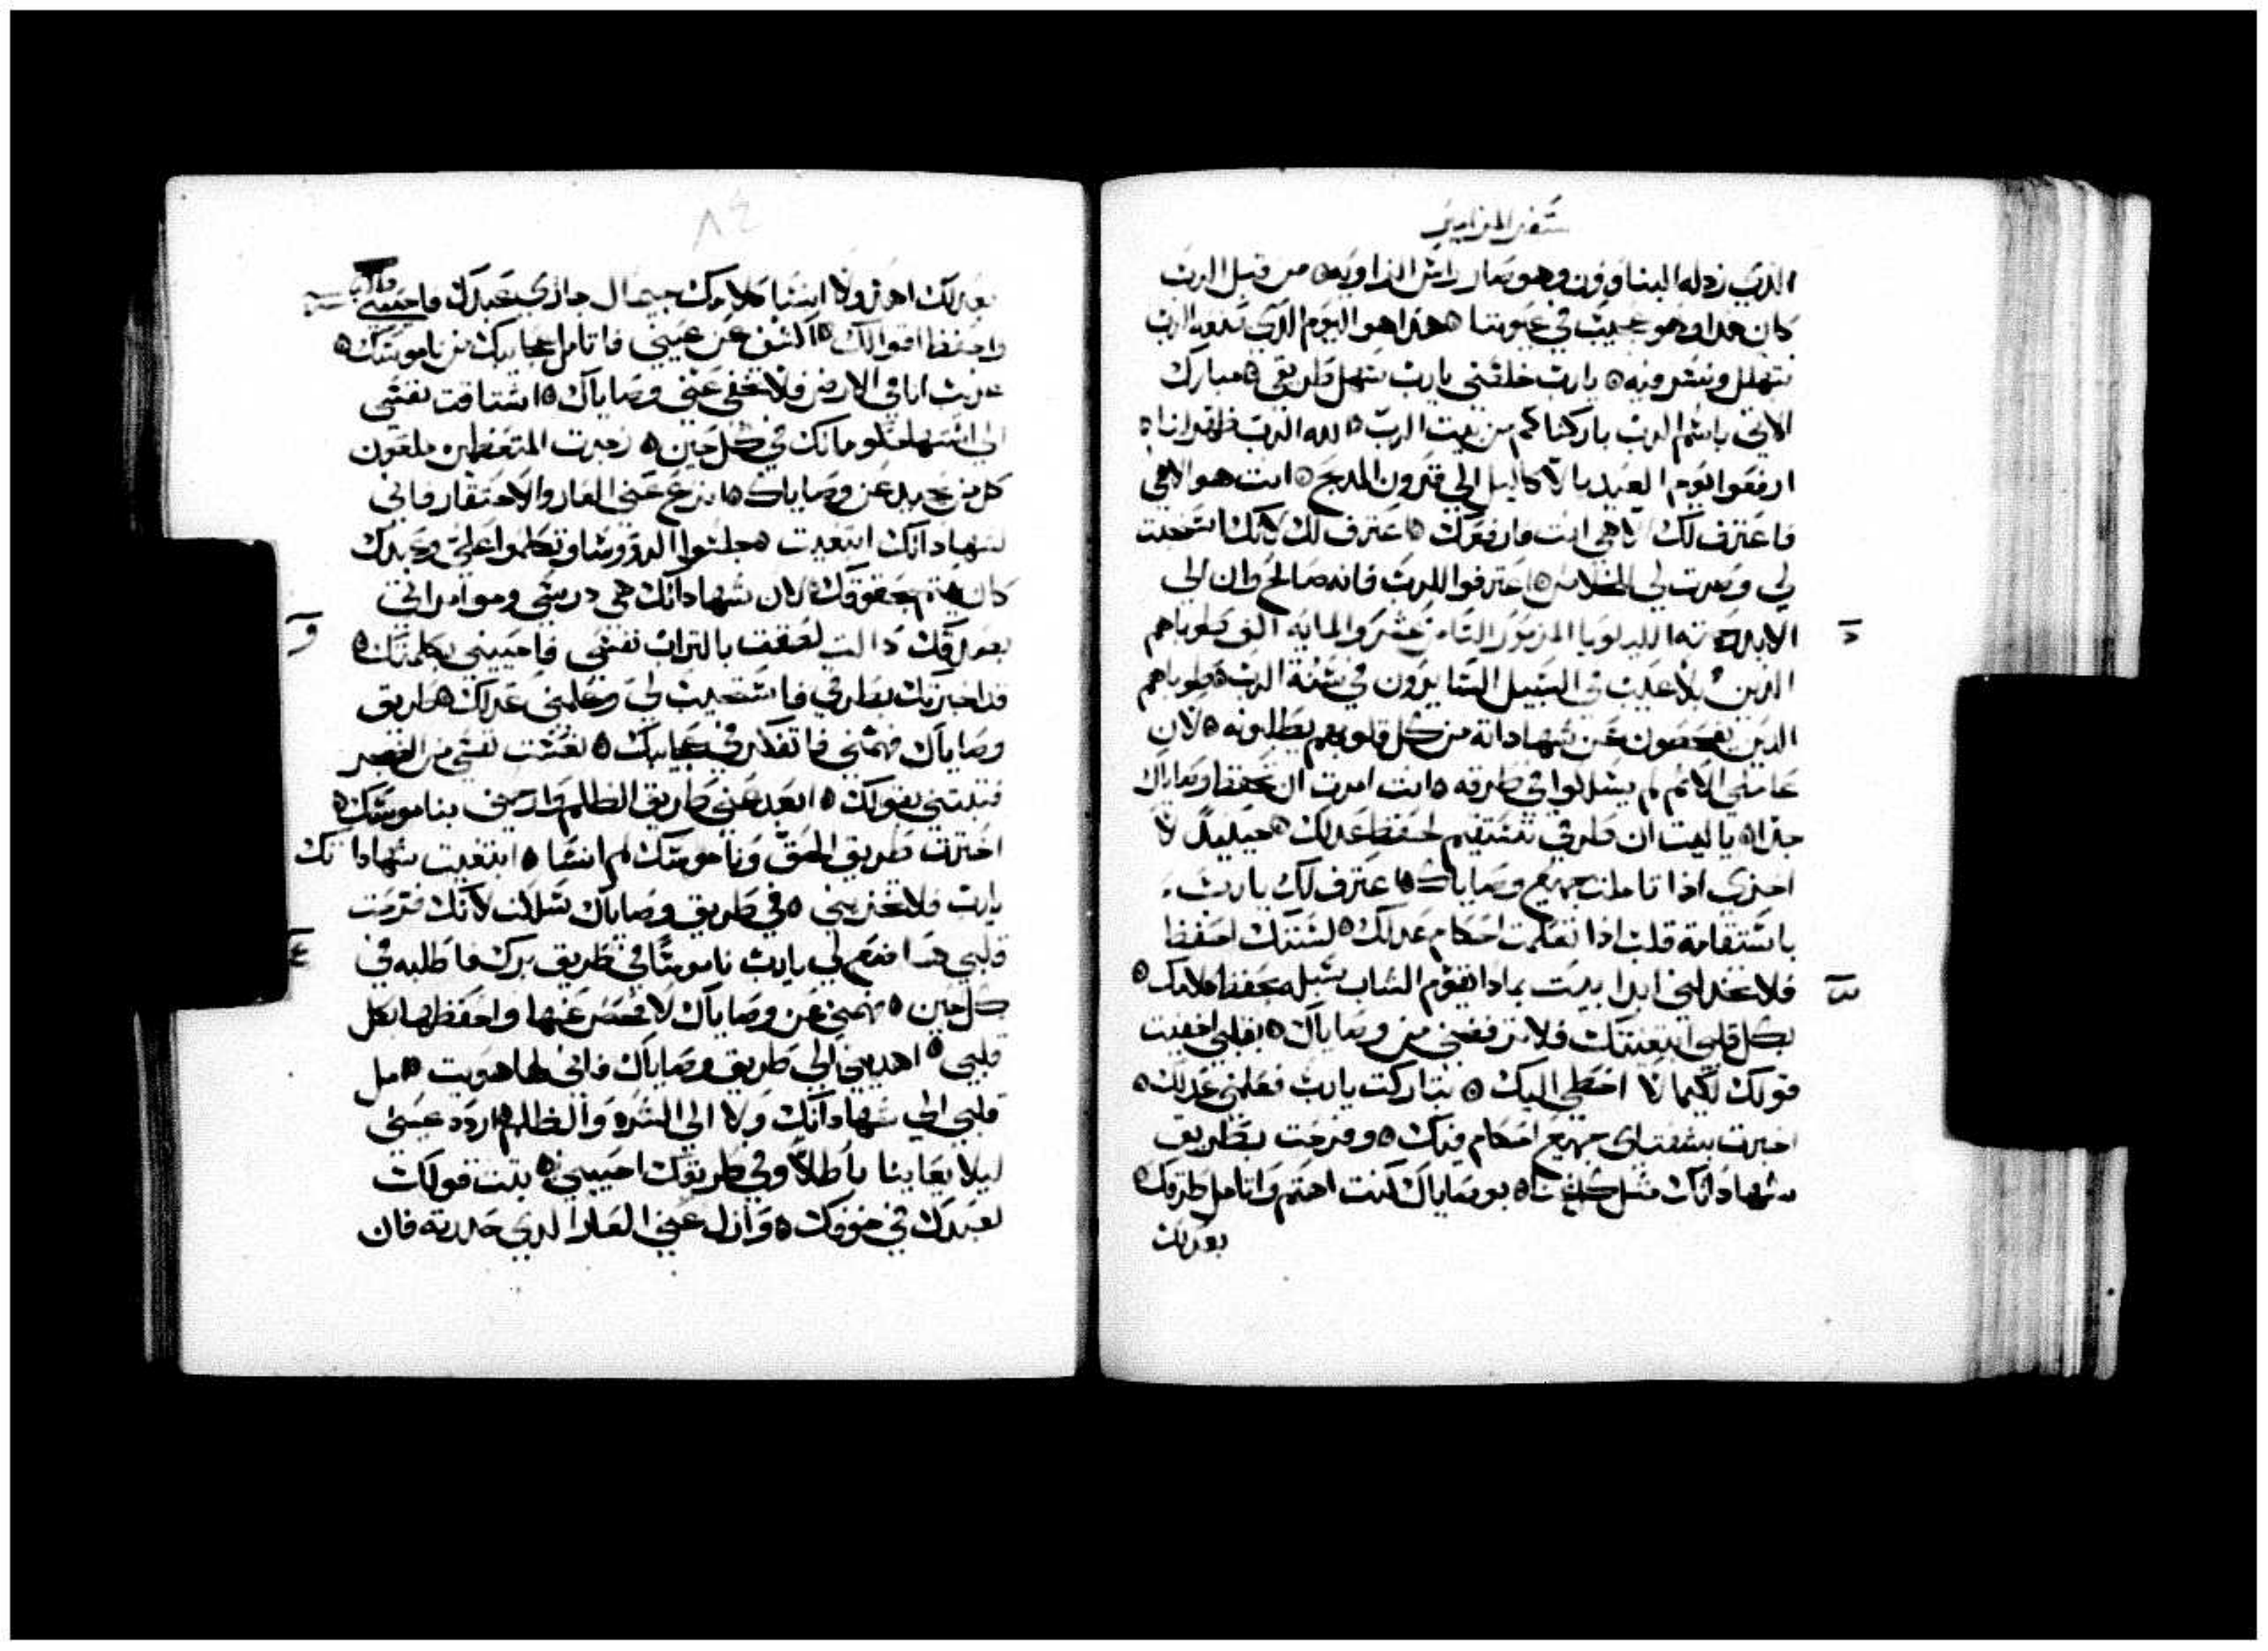 سفر المزامير
الذي رذله البناوون وهو صار راس الزاويه من قبل الرب
كان هدا وهو عجيب في عيوننا هذا هو اليوم الذي صنعه الرب
نتهلل ونسر فيه يارب خلصني يارب سهل طريقي مبارك
الاتي باسم الرب باركناكم من بيت الرب الله الرب ظهر لنا
ارفعوا يوم العيد بالاكاليل الي قرون المدبح انت هو الاهي
فاعترف لك الاهي انت فارفعك اعترف لك لانك استجبت
لي وصرت لي الخلاص اعترفوا للرب فانه صالح وان الي
الابد رحمته الليلويا المزمور التامن عشر والمايه الف طوباهم
الذين بلا عيب في السبيل السايرون في سنة الرب طوباهم
الدين يفحصون عن شهاداته من كل قلوبهم يطلبونه لان
عاملي الاثم لم يسلكوا في طرقه انت امرت ان تحفظ وصاياك
جدا يا ليت ان طرقي تستقيم لحفظ عدلك حينيد لا
اخزي اذا تاملت جميع وصاياك اعترف لك يارب
باستقامة قلب اذا تعلمت احكام عدلك لسننك احفظ
فلا تخدلني ابدا بيت بمادا يقوم الشاب سبله بحفظ كلامك
بكل قلبي ابتغيتك فلا ترفضني من وصاياك بقلبي اخفيت
قولك لكيما لا اخطي اليك تباركت يارب فعلمني عدلك
اخبرت بشفتاي جميع احكام فيك وفرحت بطريق
شهاداتك مثل كل غنا بوصاياك كنت اهتم واتامل طرقك
بعدلك
٨٤
بعدلك اهتز ولا انسا كلامك جيمال جازي عبدك فاحييني
واحفظ اقوالك اكشف عن عيني فاتامل عجايبك من ناموسك
غريب انا في الارض فلا تخفي عني وصاياك اشتاقت نفسي
الي اشتهاء حكومانك في كل حين زجرت المتعظمين ملعون
كل من يحيد عن وصاياك انزع عني العار والاحتقار فاني
لشهاداتك ابتغيت جلسوا الروسا وتكلموا علي وعبدك
كان يهتم بحقوقك لان شهاداتك هي درسي وموامراتي
بعدلك دالت لصقت بالتراب نفسي فاحييني بكلمتك
قد اخبرتك بطرقي فاستجبت لي وعلمني عدلك طريق
وصاياك فهمني فاتفكر في عجايبك نعست نفسي من الضجر
فتبتني بقولك ابعد عني طريق الظلم وارحمني بناموسك
اخترت طريق الحق وناموسك لم انسا ابتغيت شهاداتك
يارب فلا تخزيني في طريق وصاياك سلكت لانك فرحت
قلبي هدا ضع لي يارب ناموسا في طريق برك فاطلبه في
كل حين فهمني عن وصاياك لافحص عنها واحفظها بكل
قلبي اهديني الي طريق وصاياك فاني لها هويت امل
قلبي الي شهاداتك ولا الي الشره والظلم اردد عيني
ليلا يعاينا باطلا وفي طريقك احييني تبت قولك
لعبدك في خوفك وازل عني العار الدي حددته فان